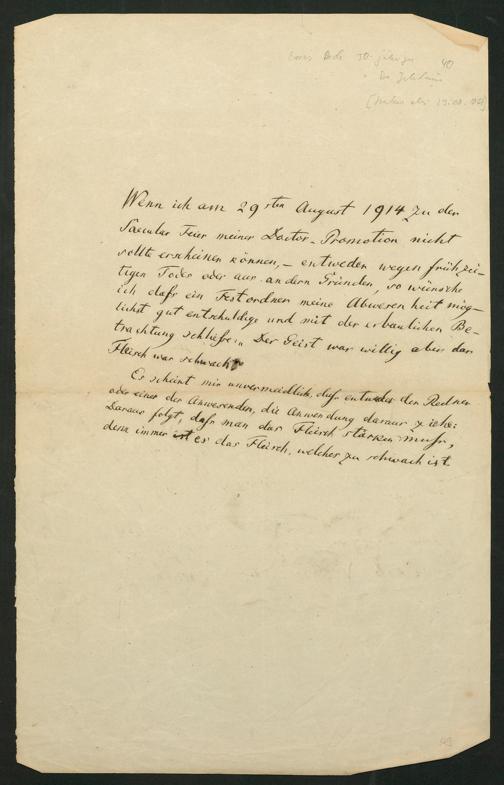 50-jähriges 40
Wenn ich am 29sten August 1914 zu der
Saecular Feier meiner Doctor-Promotion nicht
sollte erscheinen können,- entweder wegen frühzei-
tigen Todes oder aus andern Gründen, so wünsche
ich daß ein Festordner meine Abwesenheit mög-
lichst gut entschuldige und mit der erbaulichen Be-
trachtung schließe: Der Geist war willig aber das
Fleisch war schwach
Es scheint mir unvermeidlich, daß entweder der Redner
oder einer der Anwesenden, die Anwendung daraus ziehe:
Daraus folgt, daß man das Fleisch stärken muß,
denn immer ist es das Fleisch, welches zu schwach ist.